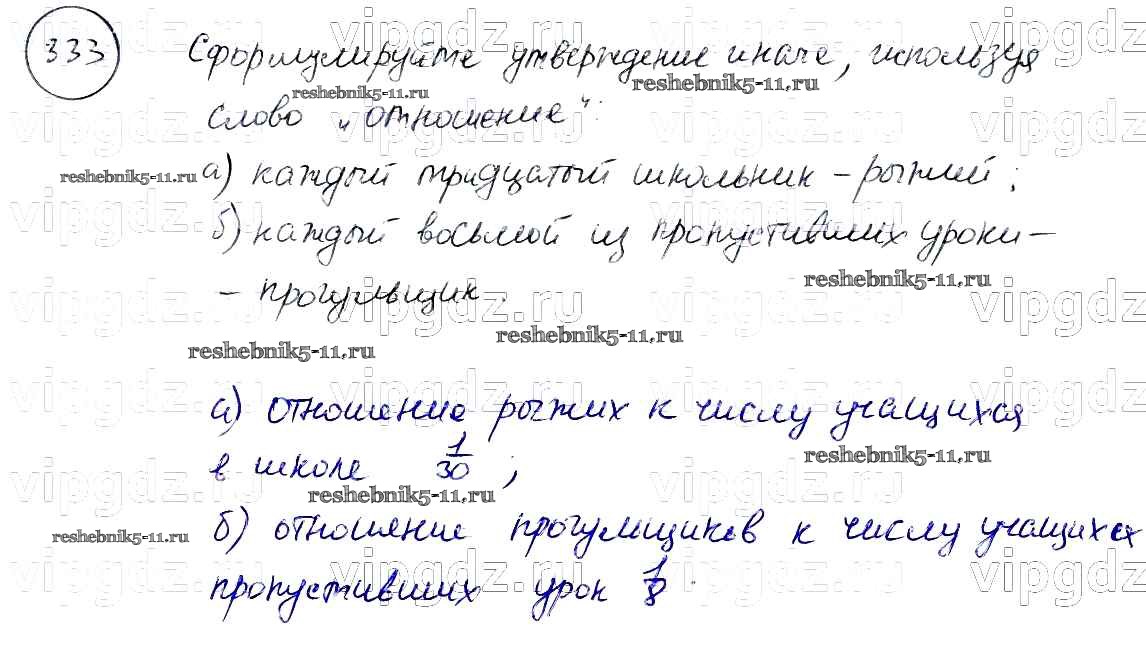 333 Сформулируйте утверждение иначе, используя
слово „отношение“:
а) каждый тридцатый школьник – рыжий;
б) каждый восьмой из пропустивших уроки –
– прогульщик.
а) отношение рыжих к числу учащихся
в школе 1/30 ;
б) отношение прогульщиков к числу учащихся
пропустивших урок 1/8.
vipgdz.ru
reshebnik5-11.ru